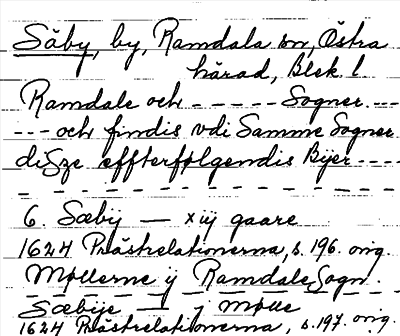 Säby, by, Ramdala sn, Östra
härad, Blek. l.
Ramdale och - - - - - Sogner. - - -
- - - och findis vdi Samme Sogner
diSze effterfølgendis Byer - - - -
- - - - - - - - - - - - - -
6. Sæbij — xiij gaare
1624 Prästrelationerna, s. 196. orig.
Møllerne ij Ramdale Sogn.
Sæbije — j Mølle
1624 Prästrelationerna, s. 197. orig.